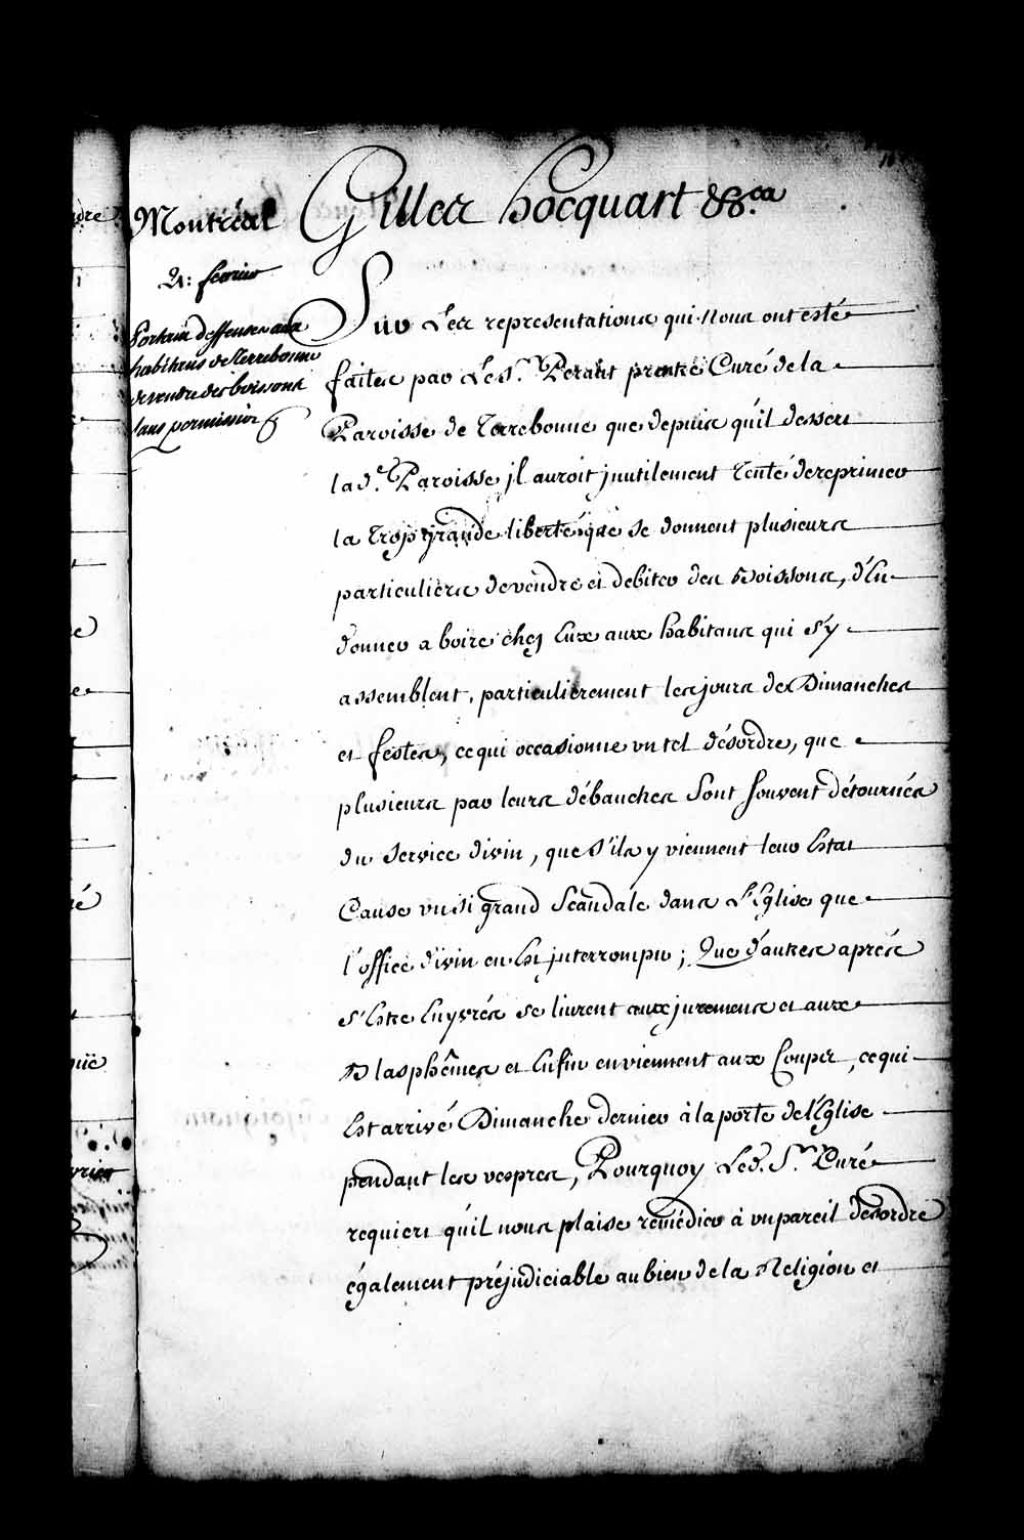 Montréal
21: fevrier
Portant deffenses aux
habitans de Terrebonne
de vendre des boissons
sans permission
Gilles hocquart &&.ca
Sur Les representations qui nous ont esté
faites par Le S.r prestre Curé de la
Paroisse de Terrebonne que depuis qu'il dessert
la d.e Paroisse jl auroit jnutilement tenté de reprimer
la trop grande liberté que se donnent plusieurs
particuliers de vendre et debiter des Boissons, d'En
donner a boire chez Eux aux habitans qui s'y
assemblent, particulierement les jours de Dimanches
et festes, ce qui occasionne un tel désordre, que
plusieurs par leurs débauches Sont souvent détournés
du Service divin, que S'ils y viennent leur Estat
Cause un si grand Scandale dans L'Eglise que
l'office divin en Est jnterrompu; Que d'autres aprés
s'Estre Enyvrés se livrent aux juremens et aux
Blasphêmes et Enfin en viennent aux Coups, ce qui
Est arrivé Dimanche dernier à la porte de l'Eglise
pendant les vespres, Pourquoy Led. S.r Curé
requiert qu'il nous plaise remédier à un pareil desordre
également préjudiciable au bien de la Religion et